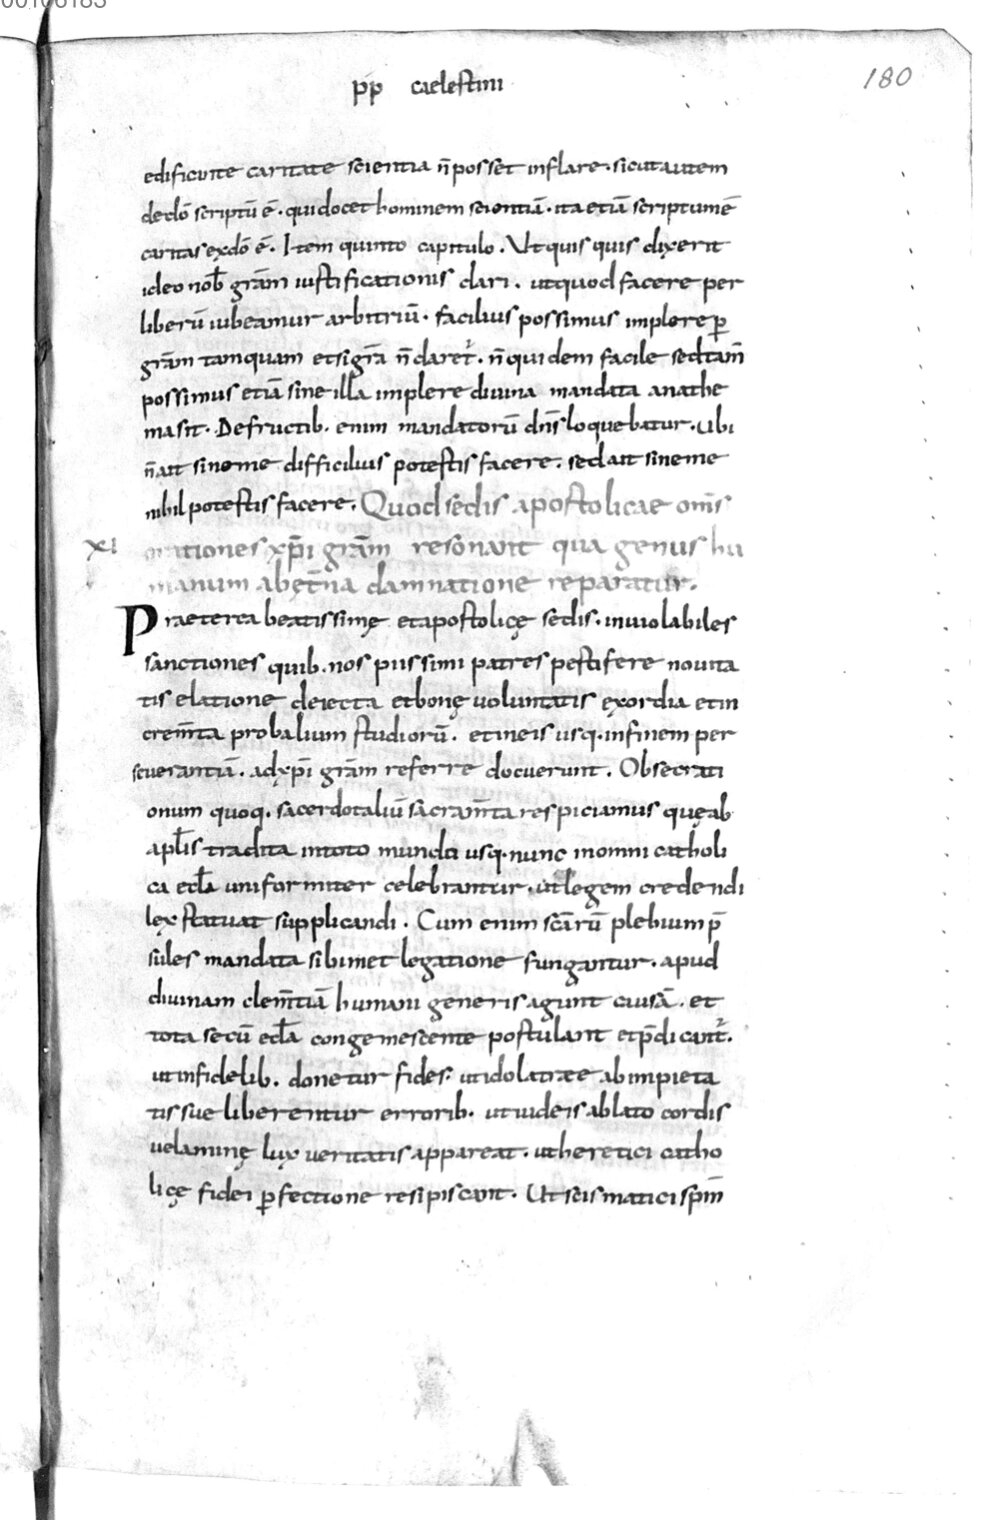 pp caelestini
180
edificante caritate scientia n̄ posset inflare. sicut autem
de dō scriptū ē. qui docet hominem scientiā. ita etiā scriptum ē
caritas ex dō ē. Item quinto capitulo. Ut quis quis dixerit
ideo nob̄ grām iustificationis dari. ut quod facere per
liberū iubeamur arbitriū. facilius possimus implere p̄
grām tamquam et si gr̄a n̄ daret᷑. n̄ quidem facile sed tam̄
possimus etiā sine illa implere diuina mandata anathe
ma sit. De fructib. enim mandatorū dn̄s loquebatur. ubi
n̄ ait sine me difficilius potestis facere. sed ait sine me
nihil potestis facere. Quod sedis apostolicae om̄s
XI orationes xp̄i grām resonant qua genus hu
manum ab ęt̄na damnatione reparatur.
Praeterea beatissimę et apostolicę sedis. inuiolabiles
sanctiones quib. nos piissimi patres pestifere nouita
tis elatione deiecta et bonę uoluntatis exordia et in
crem̄ta probalium studiorū. et in eis usq. in finem per
seuerantiā. ad xp̄i grām referre docuerunt. Obsecrati
onum quoq. sacerdotaliū sacram̄ta respiciamus quę ab
apl̄is tradita in toto mundo usq. nunc in omni catholi
ca eccl̄a uniformiter celebrantur. ut legem credendi
lex statuat supplicandi. Cum enim scārū plebium p̄
sules mandata sibimet legatione fungantur. apud
diuinam clem̄tiā humani generis agunt causā. et
tota secū eccl̄a congemescente postulant et p̄dicant᷑.
ut infidelib. donetur fides. ut idolatrae ab impieta
tis sue liberentur errorib. ut iudeis ablato cordis
uelaminę lux ueritatis appareat. ut heretici catho
licę fidei p̄fectione resipiscant. Ut scismatici sp̄m